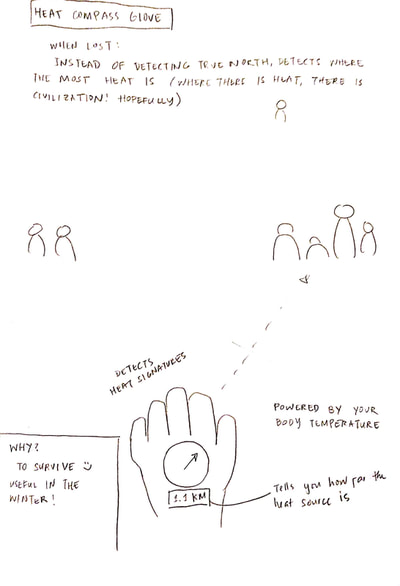 HEAT COMPASS GLOVE
WHEN LOST:
INSTEAD OF DETECTING TRUE NORTH, DETECTS WHERE
THE MOST HEAT IS (WHERE THERE IS HEAT, THERE IS
CIVILIZATION! HOPEFULLY)
DETECTS
HEAT SIGNATURES
POWERED BY YOUR
BODY TEMPERATURE
WHY?
TO SURVIVE
USEFUL IN THE
WINTER!
1.1 KM
Tells you how far the
heat source is